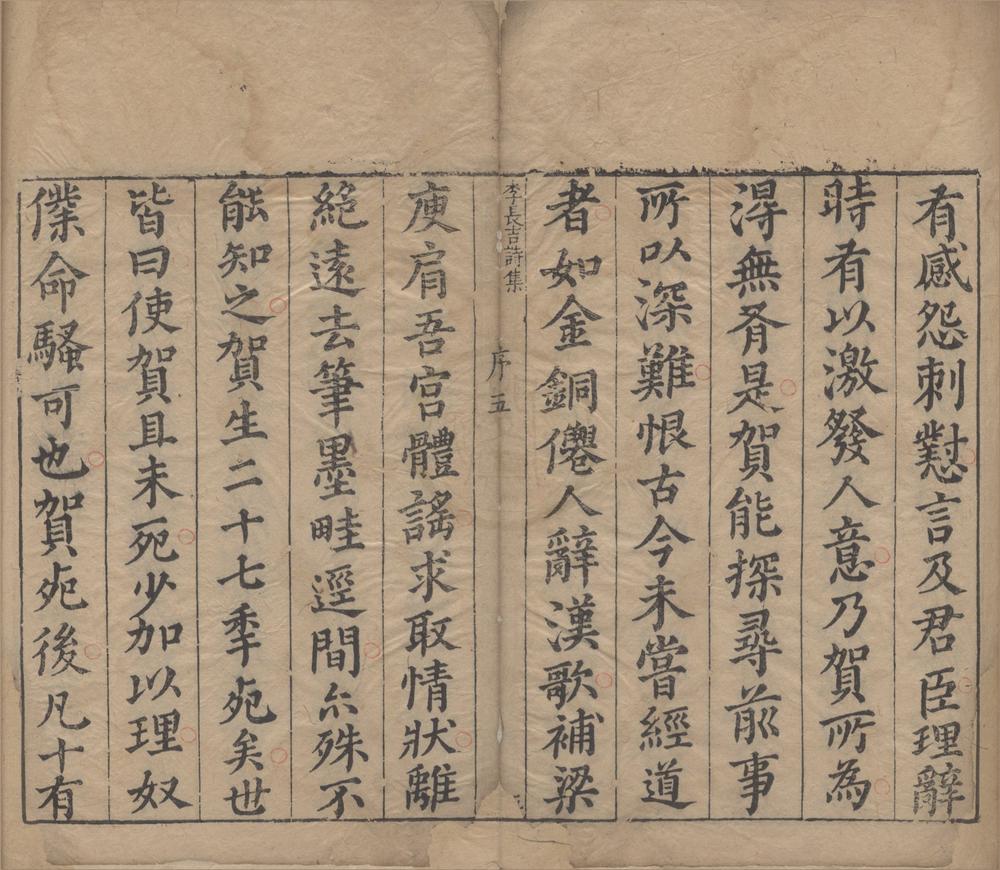 有感怨刺懟言及君臣理辭
時有以激發人意乃賀所為
得無肴是賀能探尋前事
所以深難恨古今未嘗經道
者如金銅僊人辭漢歌補梁
李長吉詩集
序 五
庾肩吾宮體謠求取情狀離
絕遠去筆墨畦逕間亦殊不
能知之賀生二十七秊死矣世
皆曰使賀且未死少加以理奴
僕命騷可也賀死後凡十有